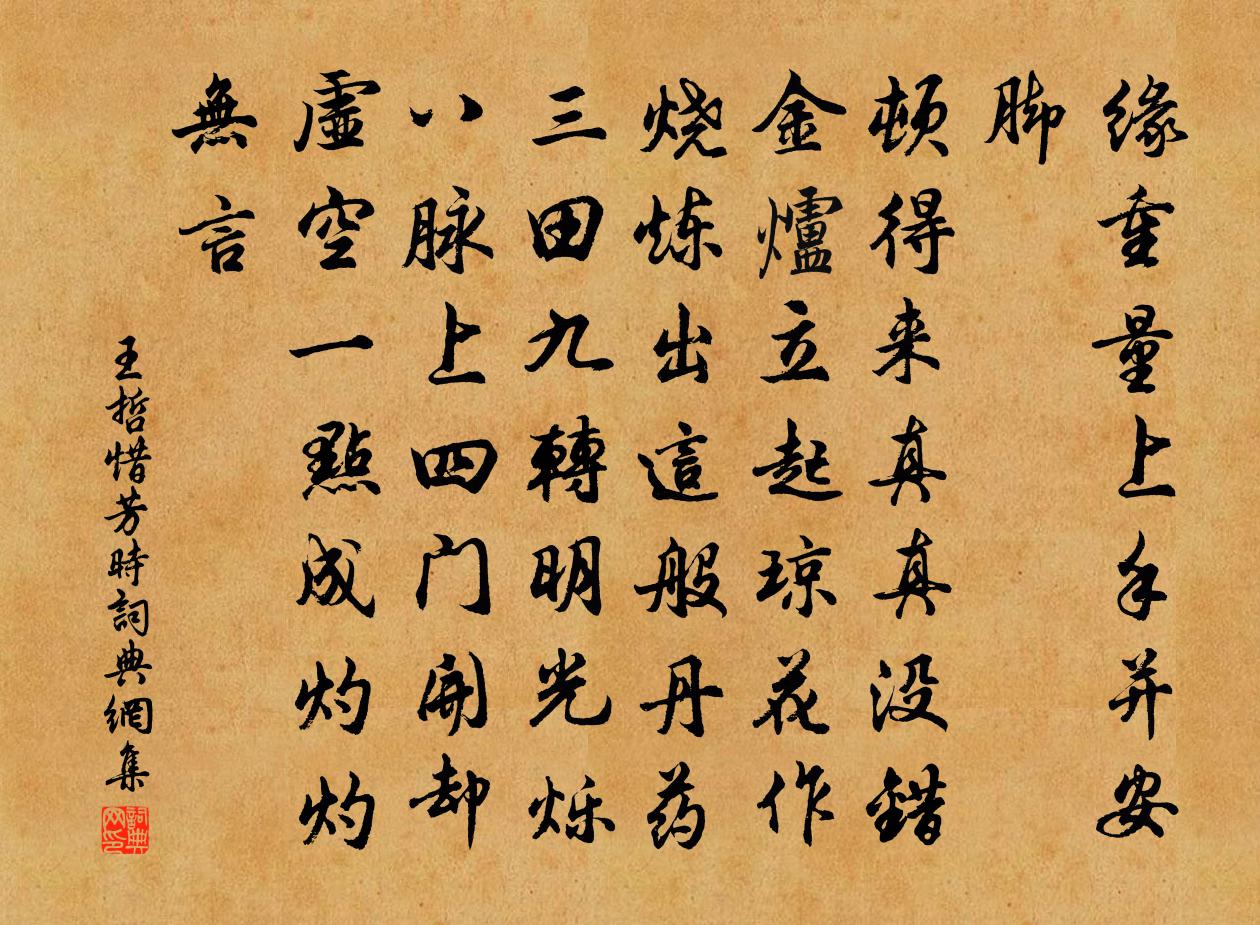 缘重量上手并安
脚
顿得来真真没錯
金爐立起琼花作
烧炼出這般丹药
三田九轉明光烁
八脉上四门開却
虛空一點成灼灼
無言
王哲惜芳時詞典網集
詞典网印